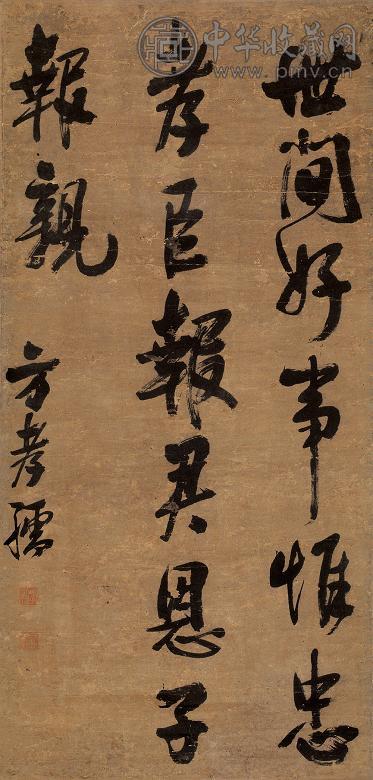 世間好事惟忠
孝臣報君恩子
報親
方孝孺
中华收藏网
www.pmv.cn